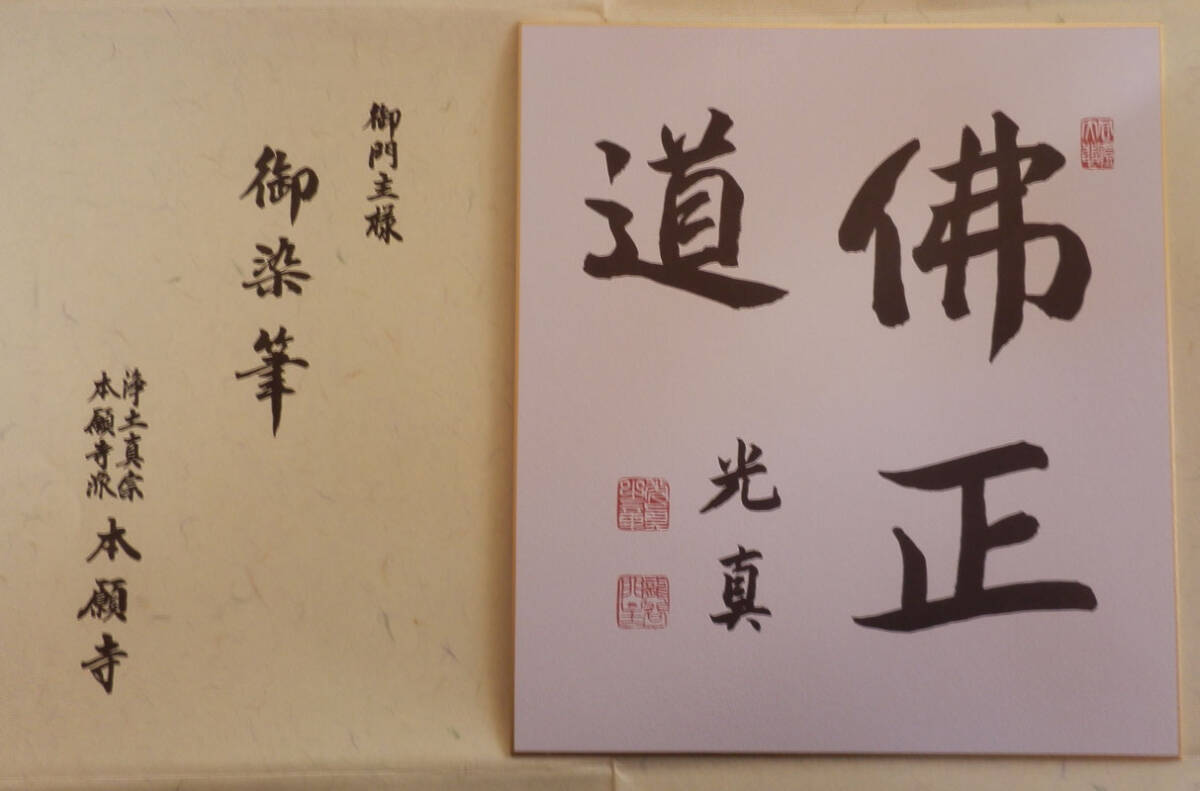 佛正
道
光真
御門主様
御染筆
浄土真宗
本願寺派
本願寺